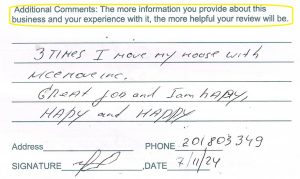 Additional Comments: The more information you provide about this
business and your experience with it, the more helpful your review will be.
3 TIMES I move my mouse with
nicemove inc.
GREAT JOB and I am HAPPY,
HAPY and HAPPY
Address PHONE 201803349
SIGNATURE ,DATE 7/11/24